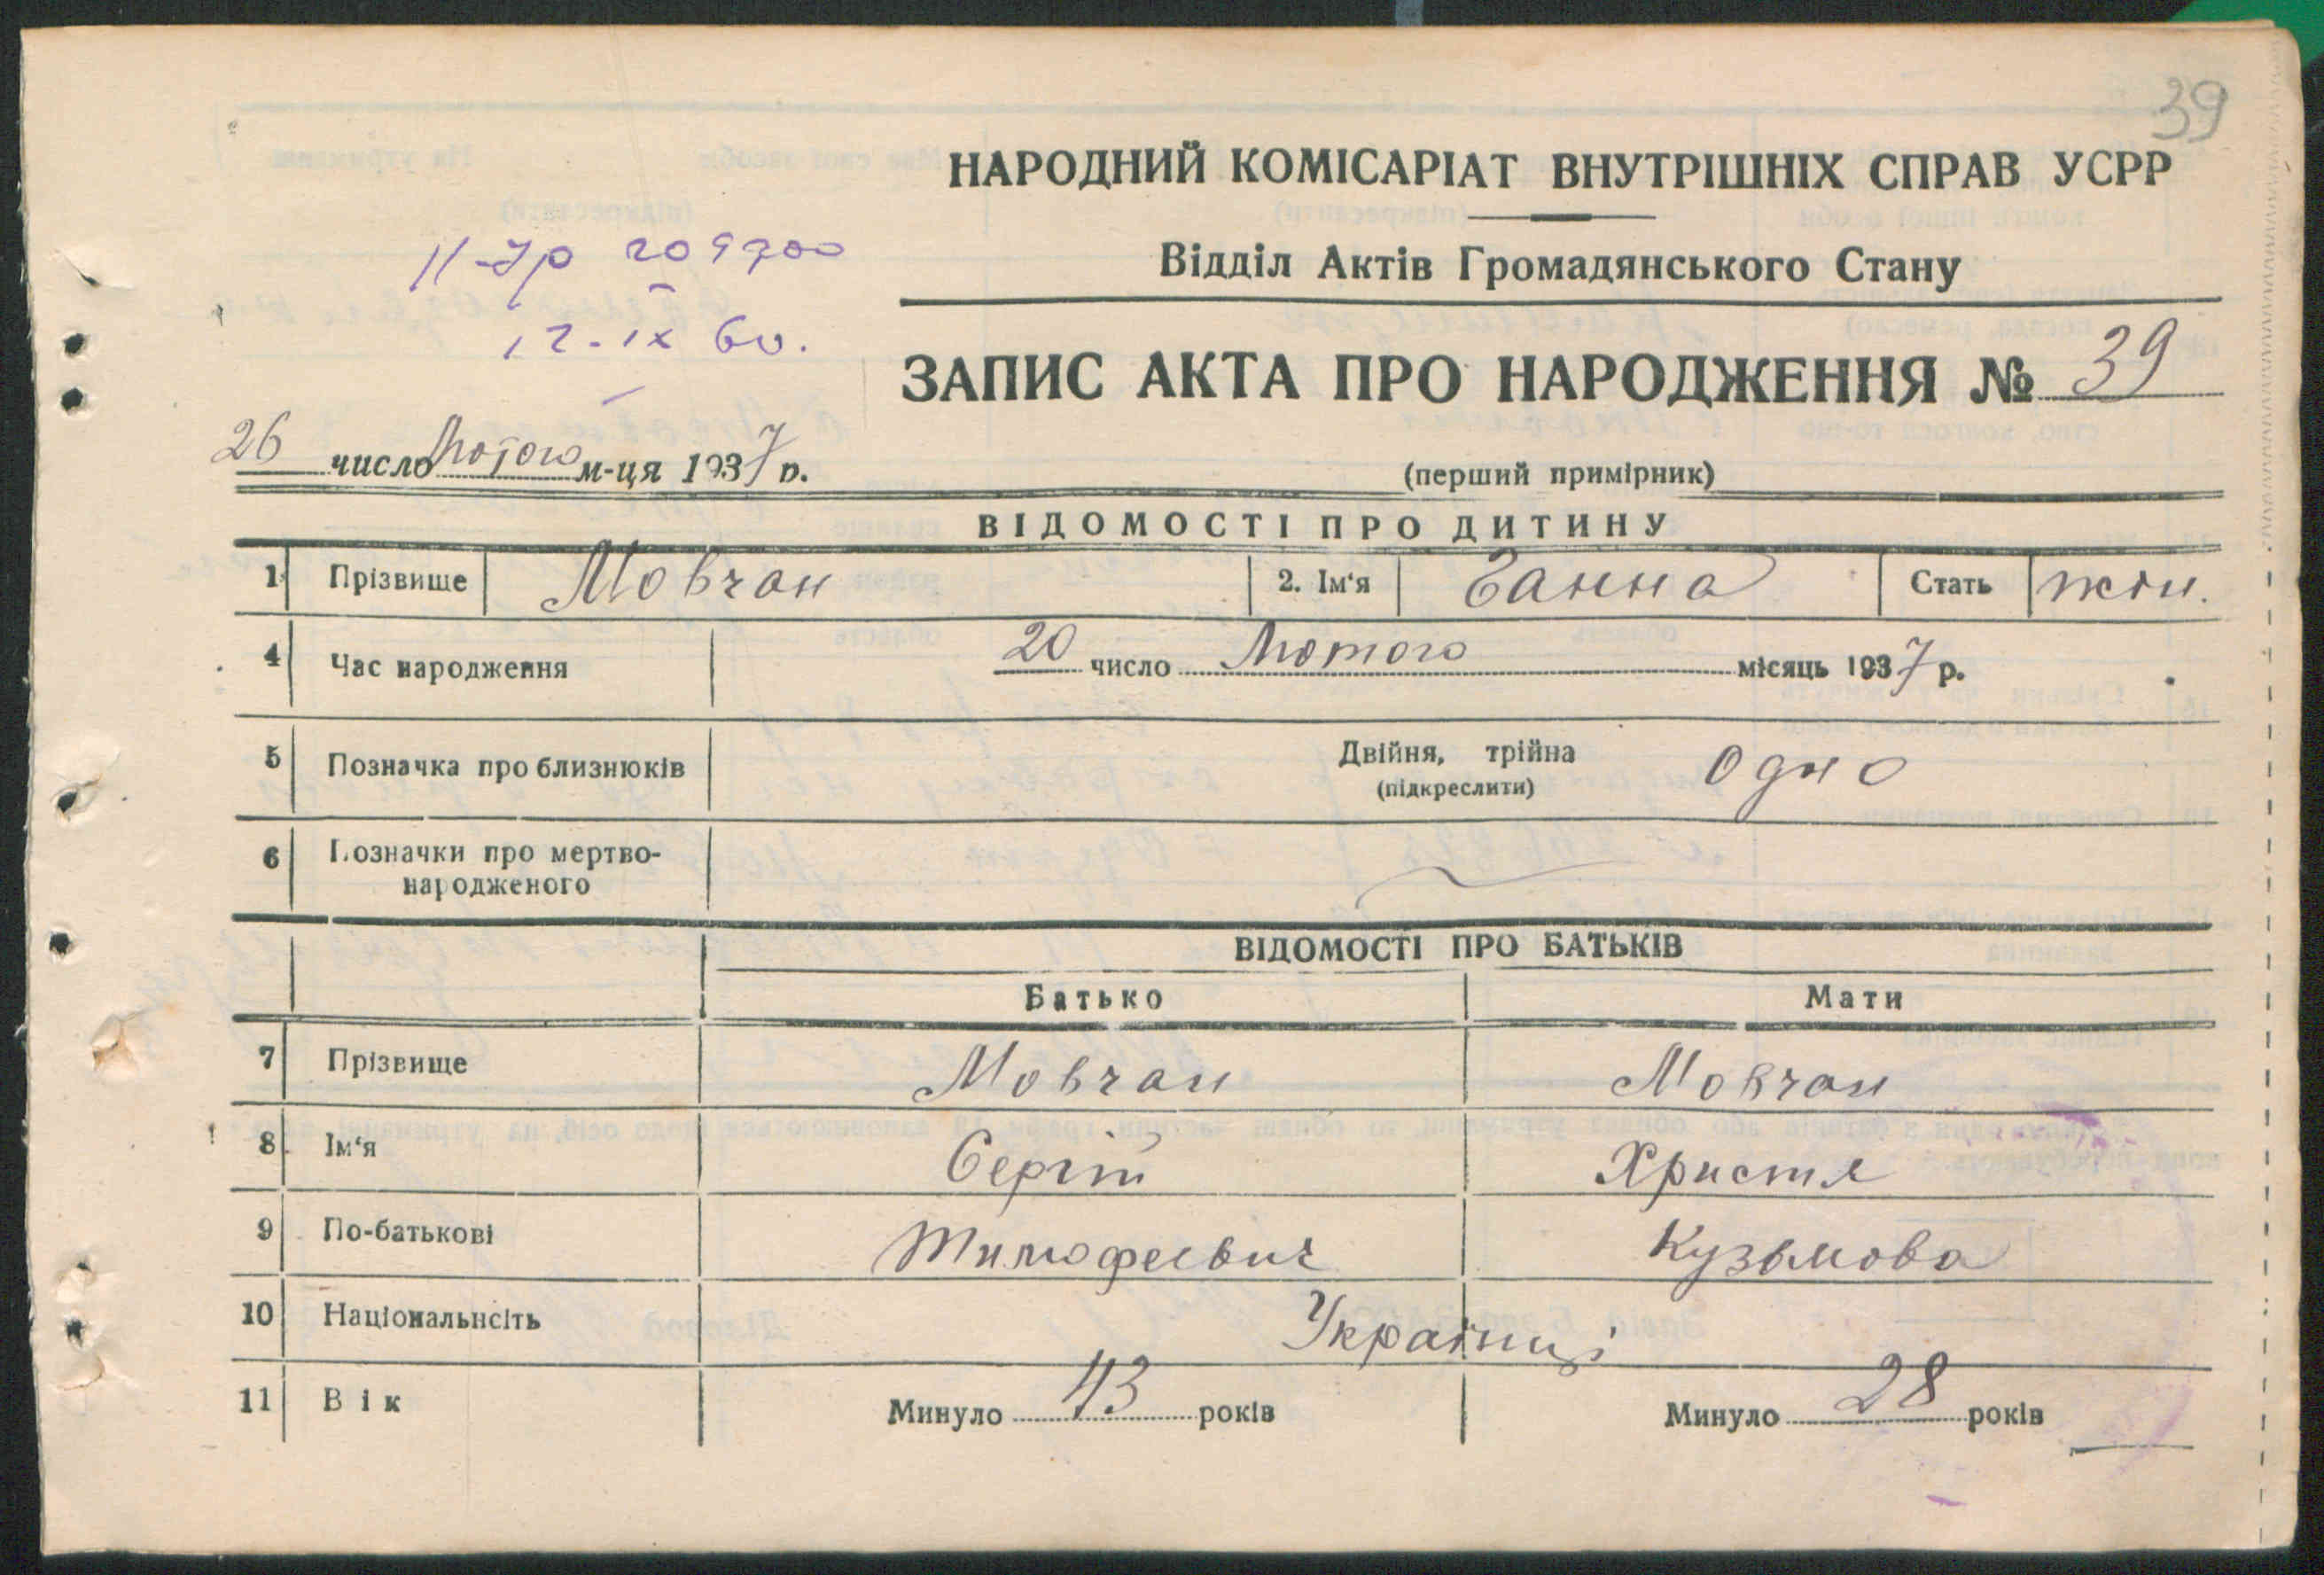 39
НАРОДНИЙ КОМІСАРІАТ ВНУТРІШНІХ СПРАВ УСРР
Відділ Актів Громадянського Стану
209700
12-IX 60.
ЗАПИС АКТА ПРО НАРОДЖЕННЯ № 39
26 число Лютого м-ця 1937 р.
(перший примірник)
ВІДОМОСТІ ПРО ДИТИНУ
1 Прізвище Мовчан 2. Ім'я Ганна Стать жін.
4 Час народження 20 число Лютого місяць 1937 р.
5 Позначка про близнюків Двійня, трійна Одно
(підкреслити)
6 Позначки про мертво-
народженого
ВІДОМОСТІ ПРО БАТЬКІВ
Батько Мати
7 Прізвище Мовчан Мовчан
8 Ім'я Сергій Христя
9 По-батькові Тимофеевич Кузьмова
10 Національнсіть Українці
11 Вік Минуло 43 років Минуло 28 років